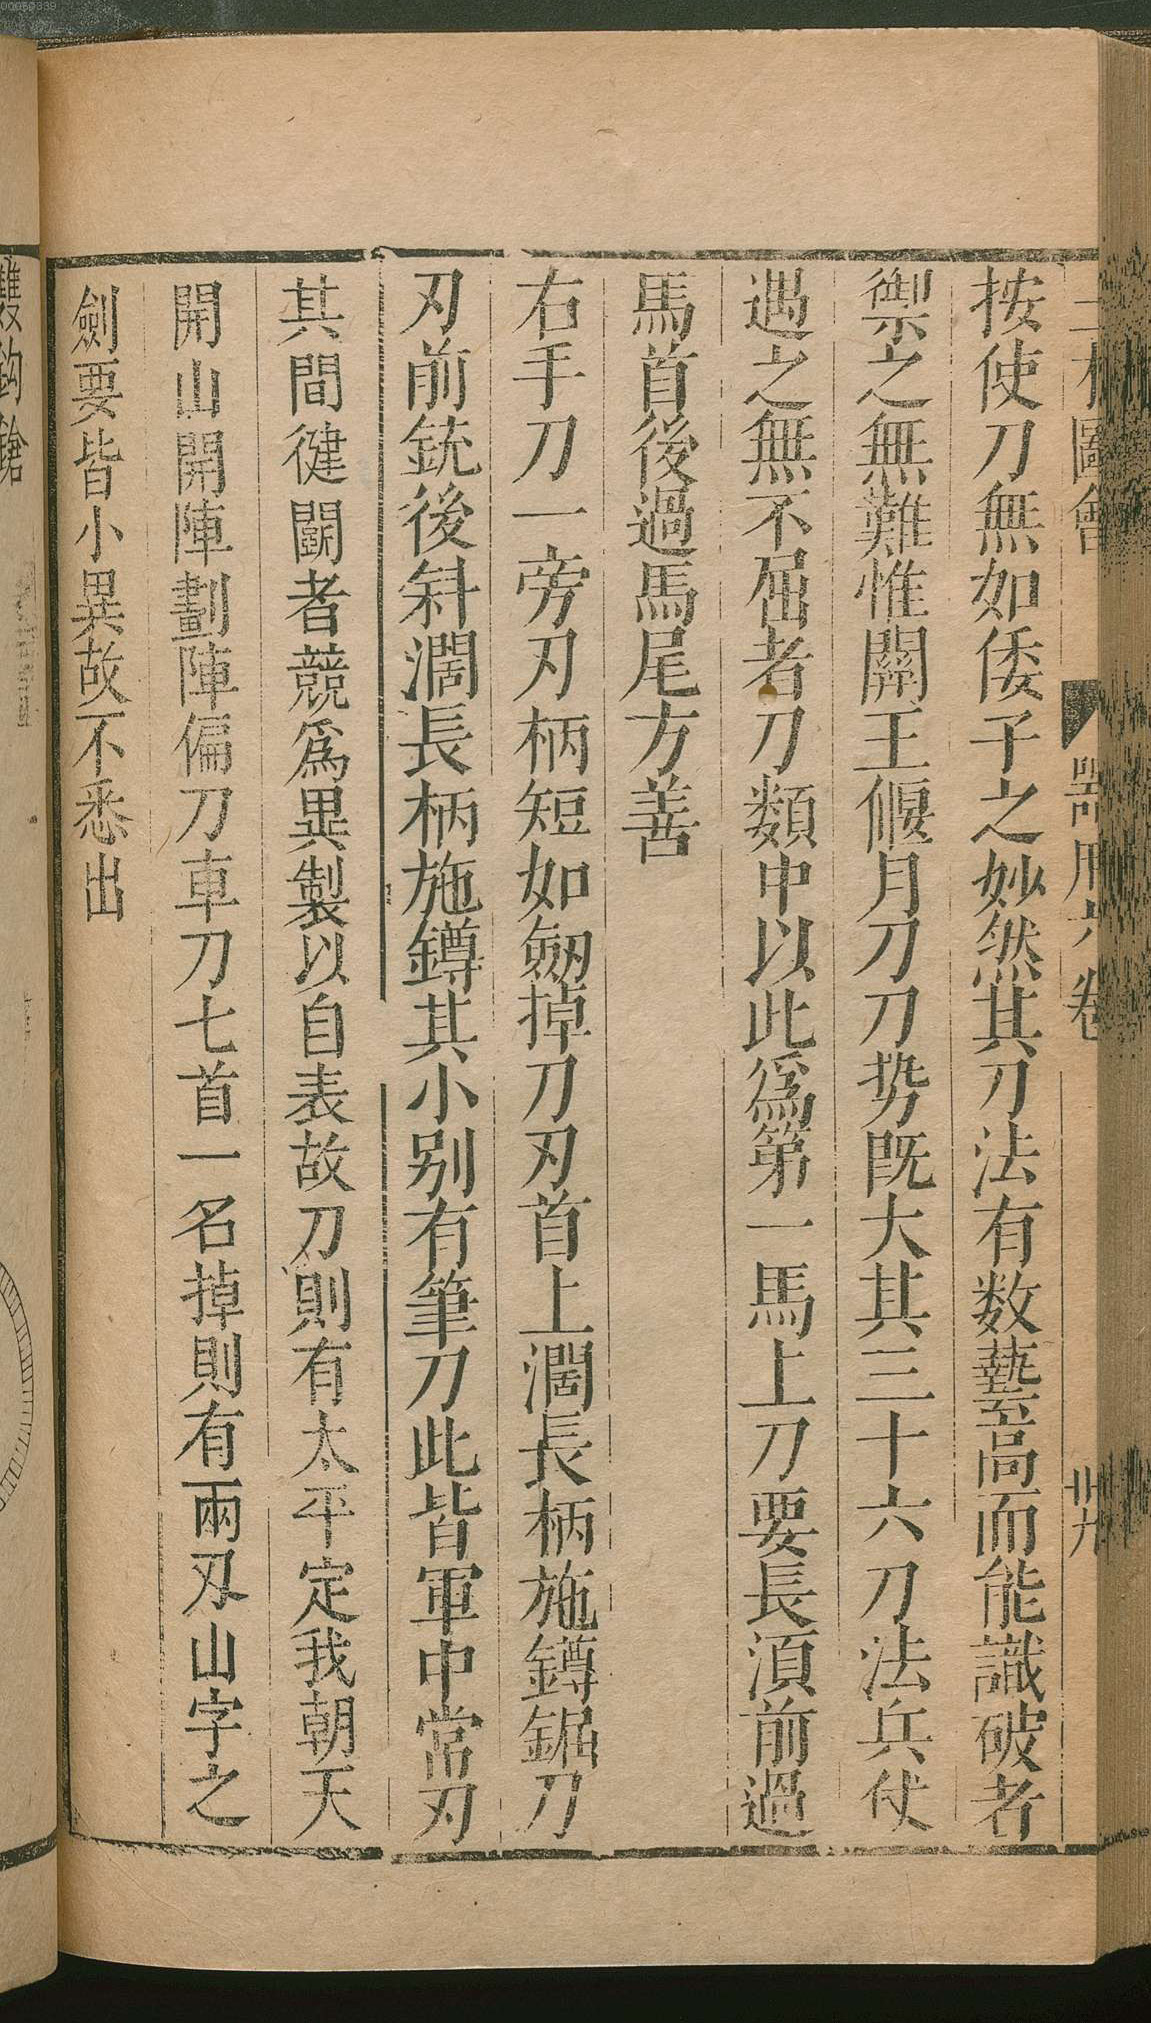 三才圖會 器用六卷 卄九
按使刀無如倭子之妙然其刀法有数藝高而能識破者
禦之無難惟關王偃月刀刀势既大其三十六刀法兵仗
遇之無不屈者刀類中以此爲第一馬上刀要長須前過
馬首後過馬尾方善
右手刀一旁刃柄短如劔掉刀刃首上濶長柄施鐏鋸刀
刃前銳後斜濶長柄施鐏其小别有筆刀此皆軍中常刃
其間健鬭者競爲異製以自表故刀則有太平定我朝天
開山開陣劃陣偏刀車刀七首一名掉則有兩刃山字之
劍要皆小異故不悉出
雙鈎鎗
00060339